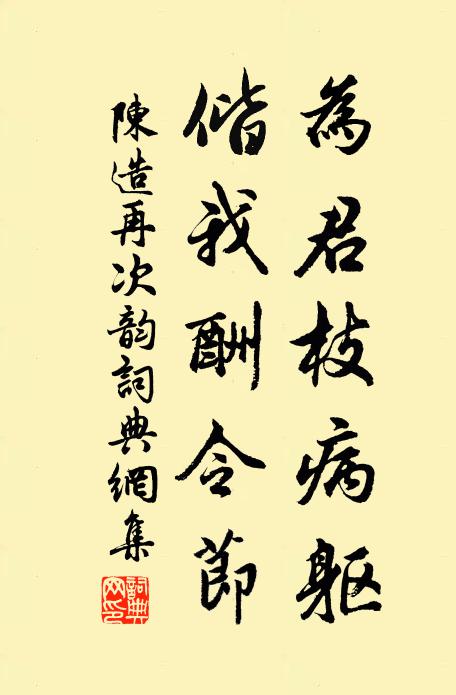 為君枝病軀
偕我酬令節
陳造再次韵詞典網集
詞典网印